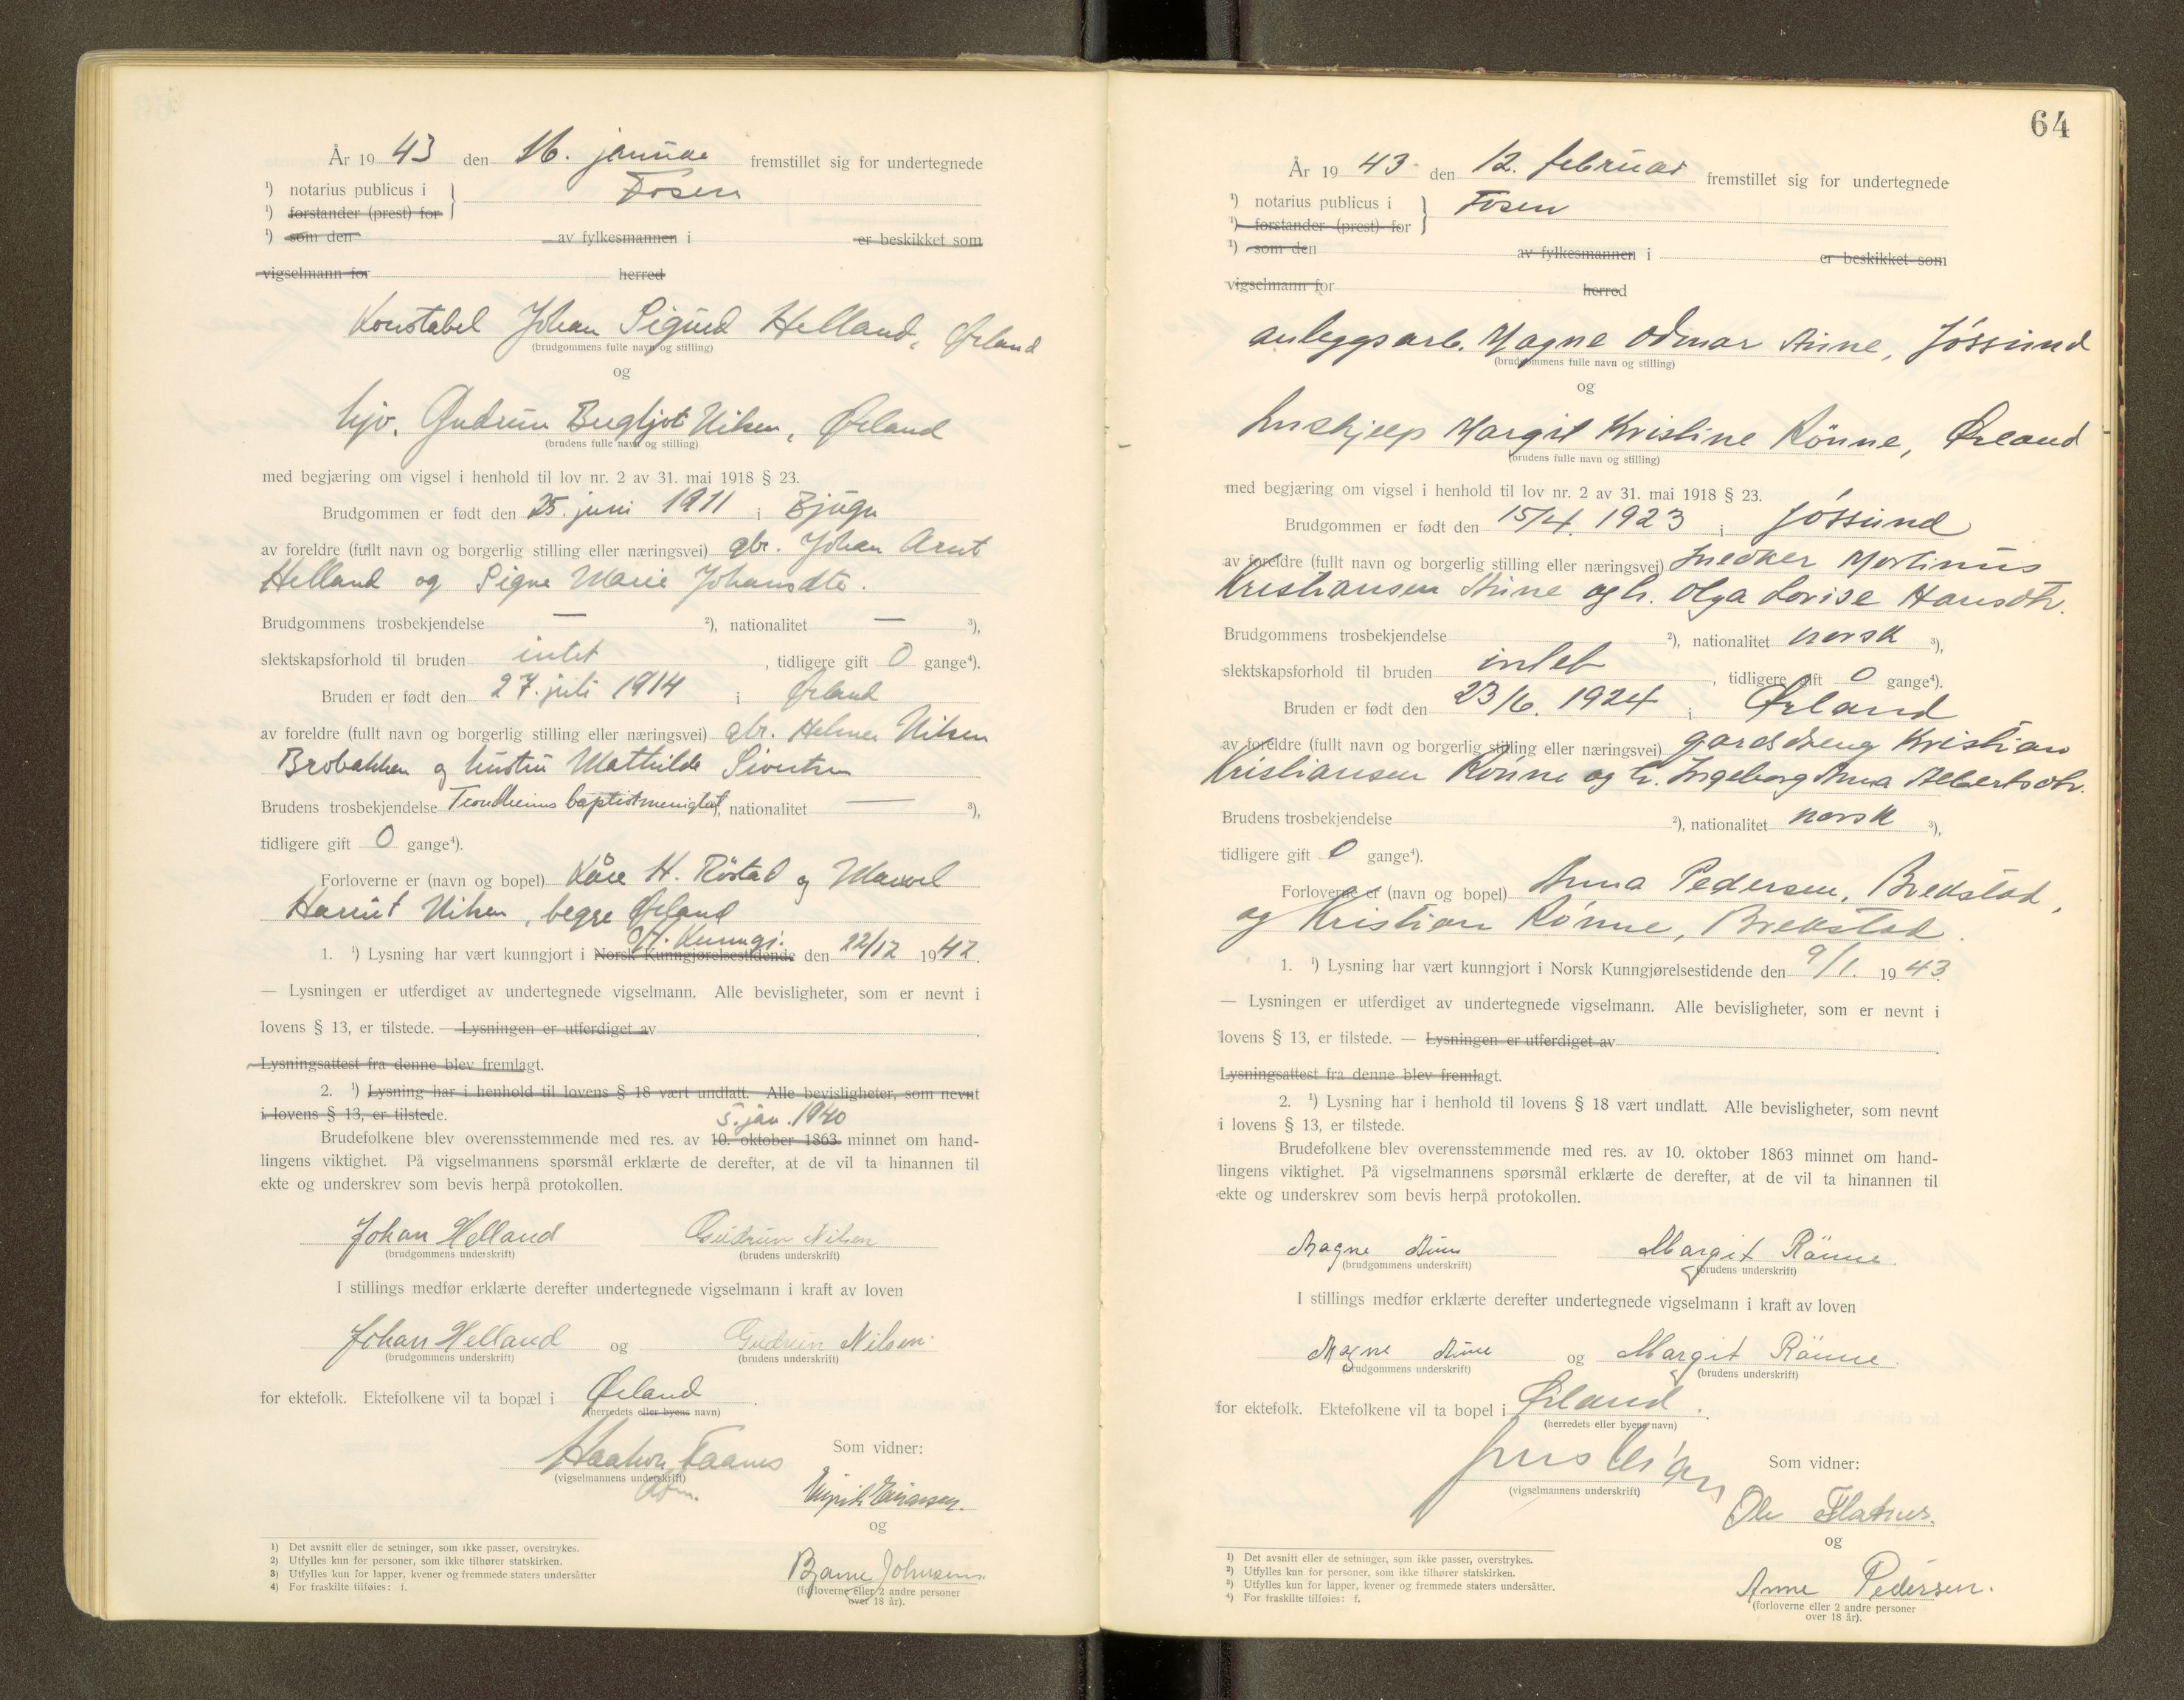 År 1943 den 16. januar fremstillet sig for undertegnede
¹) notarius publicus i Fosen
¹) forstander (prest) for
¹) som den av fylkesmannen i er beskikket som
vigselmann for herred
Konstabel Johan Sigurd Helland, Ørland
(brudgommens fulle navn og stilling)
og
hjv. Gudrun Bergljot Nilsen, Ørland
(brudens fulle navn og stilling)
med begjæring om vigsel i henhold til lov nr. 2 av 31. mai 1918 § 23.
Brudgommen er født den 25. juni 1911 i Bjugn
av foreldre (fullt navn og borgerlig stilling eller næringsvei) gbr. Johan Arnt
Helland og Signe Marie Johansdtr.
Brudgommens trosbekjendelse — ²), nationalitet — ³),
slektskapsforhold til bruden intet, tidligere gift 0 gange⁴).
Bruden er født den 27. juli 1914 i Ørland
av foreldre (fullt navn og borgerlig stilling eller næringsvei) gbr. Helmer Nilsen
Brobakken og hustru Mathilde Sivertsen
Brudens trosbekjendelse Trondheims baptistmenighet, nationalitet — ³),
tidligere gift 0 gange⁴).
Forloverne er (navn og bopel) Kåre H. Röstad og
Harriet Nilsen, begge Ørland
H. Kunngj.
1. ¹) Lysning har vært kunngjort i Norsk Kunngjørelsestidende den 22/12 1942.
— Lysningen er utferdiget av undertegnede vigselmann. Alle bevisligheter, som er nevnt i
lovens § 13, er tilstede. — Lysningen er utferdiget av
Lysningsattest fra denne blev fremlagt.
2. ¹) Lysning har i henhold til lovens § 18 vært undlatt. Alle bevisligheter, som nevnt
i lovens § 13, er tilstede.
5. jan. 1940
Brudefolkene blev overensstemmende med res. av 10. oktober 1863 minnet om hand-
lingens viktighet. På vigselmannens spørsmål erklærte de derefter, at de vil ta hinannen til
ekte og underskrev som bevis herpå protokollen.
Johan Helland Gudrun Nilsen
(brudgommens underskrift) (brudens underskrift)
I stillings medfør erklærte derefter undertegnede vigselmann i kraft av loven
Johan Helland og Gudrun Nilsen.
(brudgommens underskrift) (brudens underskrift)
for ektefolk. Ektefolkene vil ta bopæl i Ørland.
(herredets eller byens navn)
Haakon Faanes
(vigselmannens underskrift)
Som vidner:
og
Bjarne Johnsen.
(forloverne eller 2 andre personer
over 18 år).
1) Det avsnitt eller de setninger, som ikke passer, overstrykes.
2) Utfylles kun for personer, som ikke tilhører statskirken.
3) Utfylles kun for lapper, kvener og fremmede staters undersåtter
4) For fraskilte tilføies: f.
64
År 1943 den 12. februar fremstillet sig for undertegnede
¹) notarius publicus i Fosen
¹) forstander (prest) for
¹) som den av fylkesmannen i er beskikket som
vigselmann for herred
anleggsarb. Magne Odmar Aune, Jössund
(brudgommens fulle navn og stilling)
og
hushjelp Margit Kristine Rönne, Ørland
(brudens fulle navn og stilling)
med begjæring om vigsel i henhold til lov nr. 2 av 31. mai 1918 § 23.
Brudgommen er født den 15/4. 1923 i Jössund
av foreldre (fullt navn og borgerlig stilling eller næringsvei) snedker Martinus
Kristiansen Aune og h. Olga Lovise Hansdtr.
Brudgommens trosbekjendelse ²), nationalitet norsk ³),
slektskapsforhold til bruden intet, tidligere gift 0 gange⁴).
Bruden er født den 23/6. 1924 i Ørland
av foreldre (fullt navn og borgerlig stilling eller næringsvei) gardsdreng Kristian
Kristiansen Rönne og h. Ingeborg Anna Albertsdtr.
Brudens trosbekjendelse ²), nationalitet norsk ³),
tidligere gift 0 gange⁴).
Forloverne er (navn og bopel) Anna Pedersen, Brekstad,
og Kristian Rönne, Brekstad.
1. ¹) Lysning har vært kunngjort i Norsk Kunngjørelsestidende den 9/1. 1943.
— Lysningen er utferdiget av undertegnede vigselmann. Alle bevisligheter, som er nevnt i
lovens § 13, er tilstede. — Lysningen er utferdiget av
Lysningsattest fra denne blev fremlagt.
2. ¹) Lysning har i henhold til lovens § 18 vært undlatt. Alle bevisligheter, som nevnt
i lovens § 13, er tilstede.
Brudefolkene blev overensstemmende med res. av 10. oktober 1863 minnet om hand-
lingens viktighet. På vigselmannens spørsmål erklærte de derefter, at de vil ta hinannen til
ekte og underskrev som bevis herpå protokollen.
Magne Aune Margit Rönne.
(brudgommens underskrift) (brudens underskrift)
I stillings medfør erklærte derefter undertegnede vigselmann i kraft av loven
Magne Aune og Margit Rönne.
(brudgommens underskrift) (brudens underskrift)
for ektefolk. Ektefolkene vil ta bopel i Ørland.
(herredets eller byens navn)
(vigselmannens underskrift)
Som vidner:
Ole
og
Anne Pedersen.
(forloverne eller 2 andre personer
over 18 år).
1) Det avsnitt eller de setninger, som ikke passer, overstrykes.
2) Utfylles kun for personer, som ikke tilhører statskirken.
3) Utfylles kun for lapper, kvener og fremmede staters undersåtter.
4) For fraskilte tilføies: f.